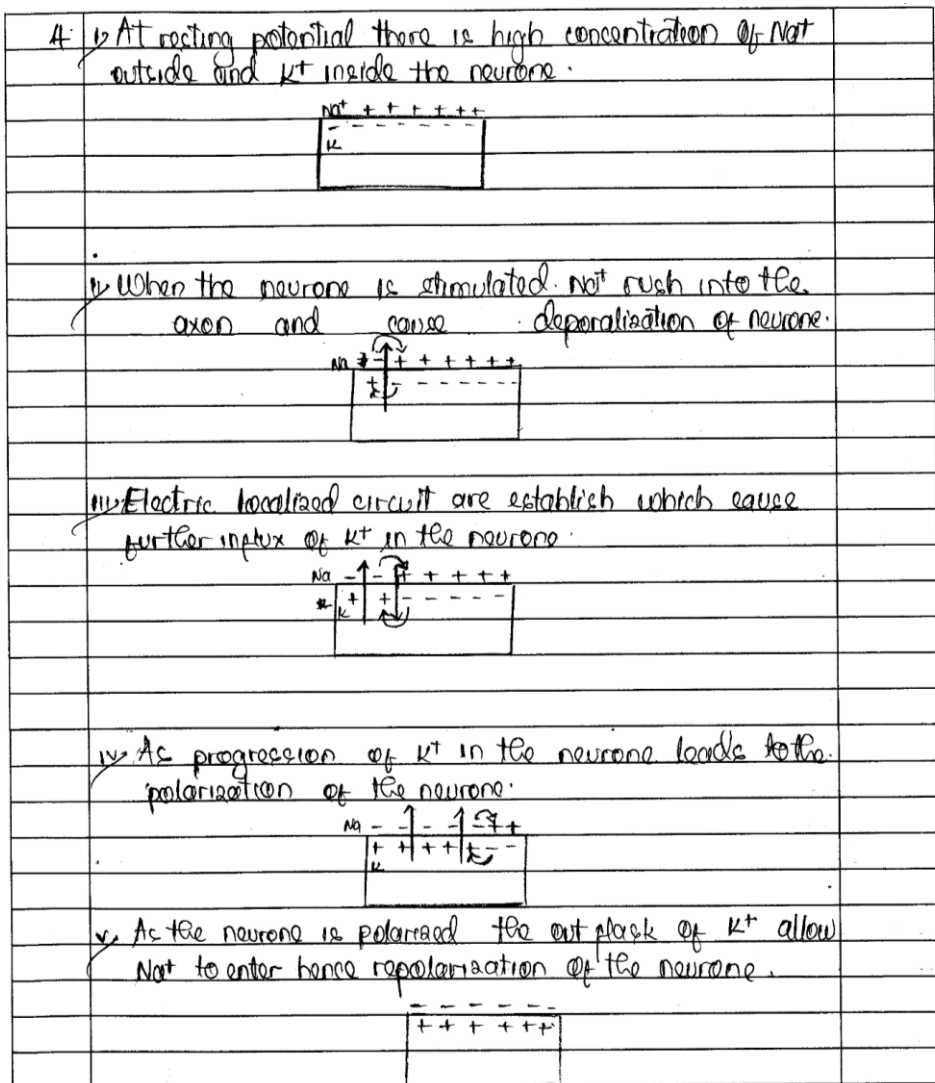 4 i) At resting potential there is high concentration of Na+
outside and K+ inside the neurone.
Na+ + + + + + +
- - - - - - -
K
ii) When the neurone is stimulated. Na+ rush into the
axon and cause deporalization of neurone.
Na + - + + + + + +
+ - - - - - - -
K
iii) Electric localized circuit are establish which cause
further influx of K+ in the neurone.
Na - - + + + + +
+ + - - - - - -
K
iv) As progression of K+ in the neurone leads to the.
polarization of the neurone.
Na - - - - - + +
+ + + + + - -
K
v) As the neurone is polarized the out flask of K+ allow
Na+ to enter hence repolarization of the neurone.
- - - - - -
+ + + + + +